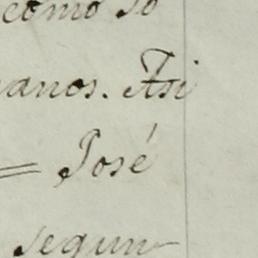 como lo
anos. Asi
= José
segun